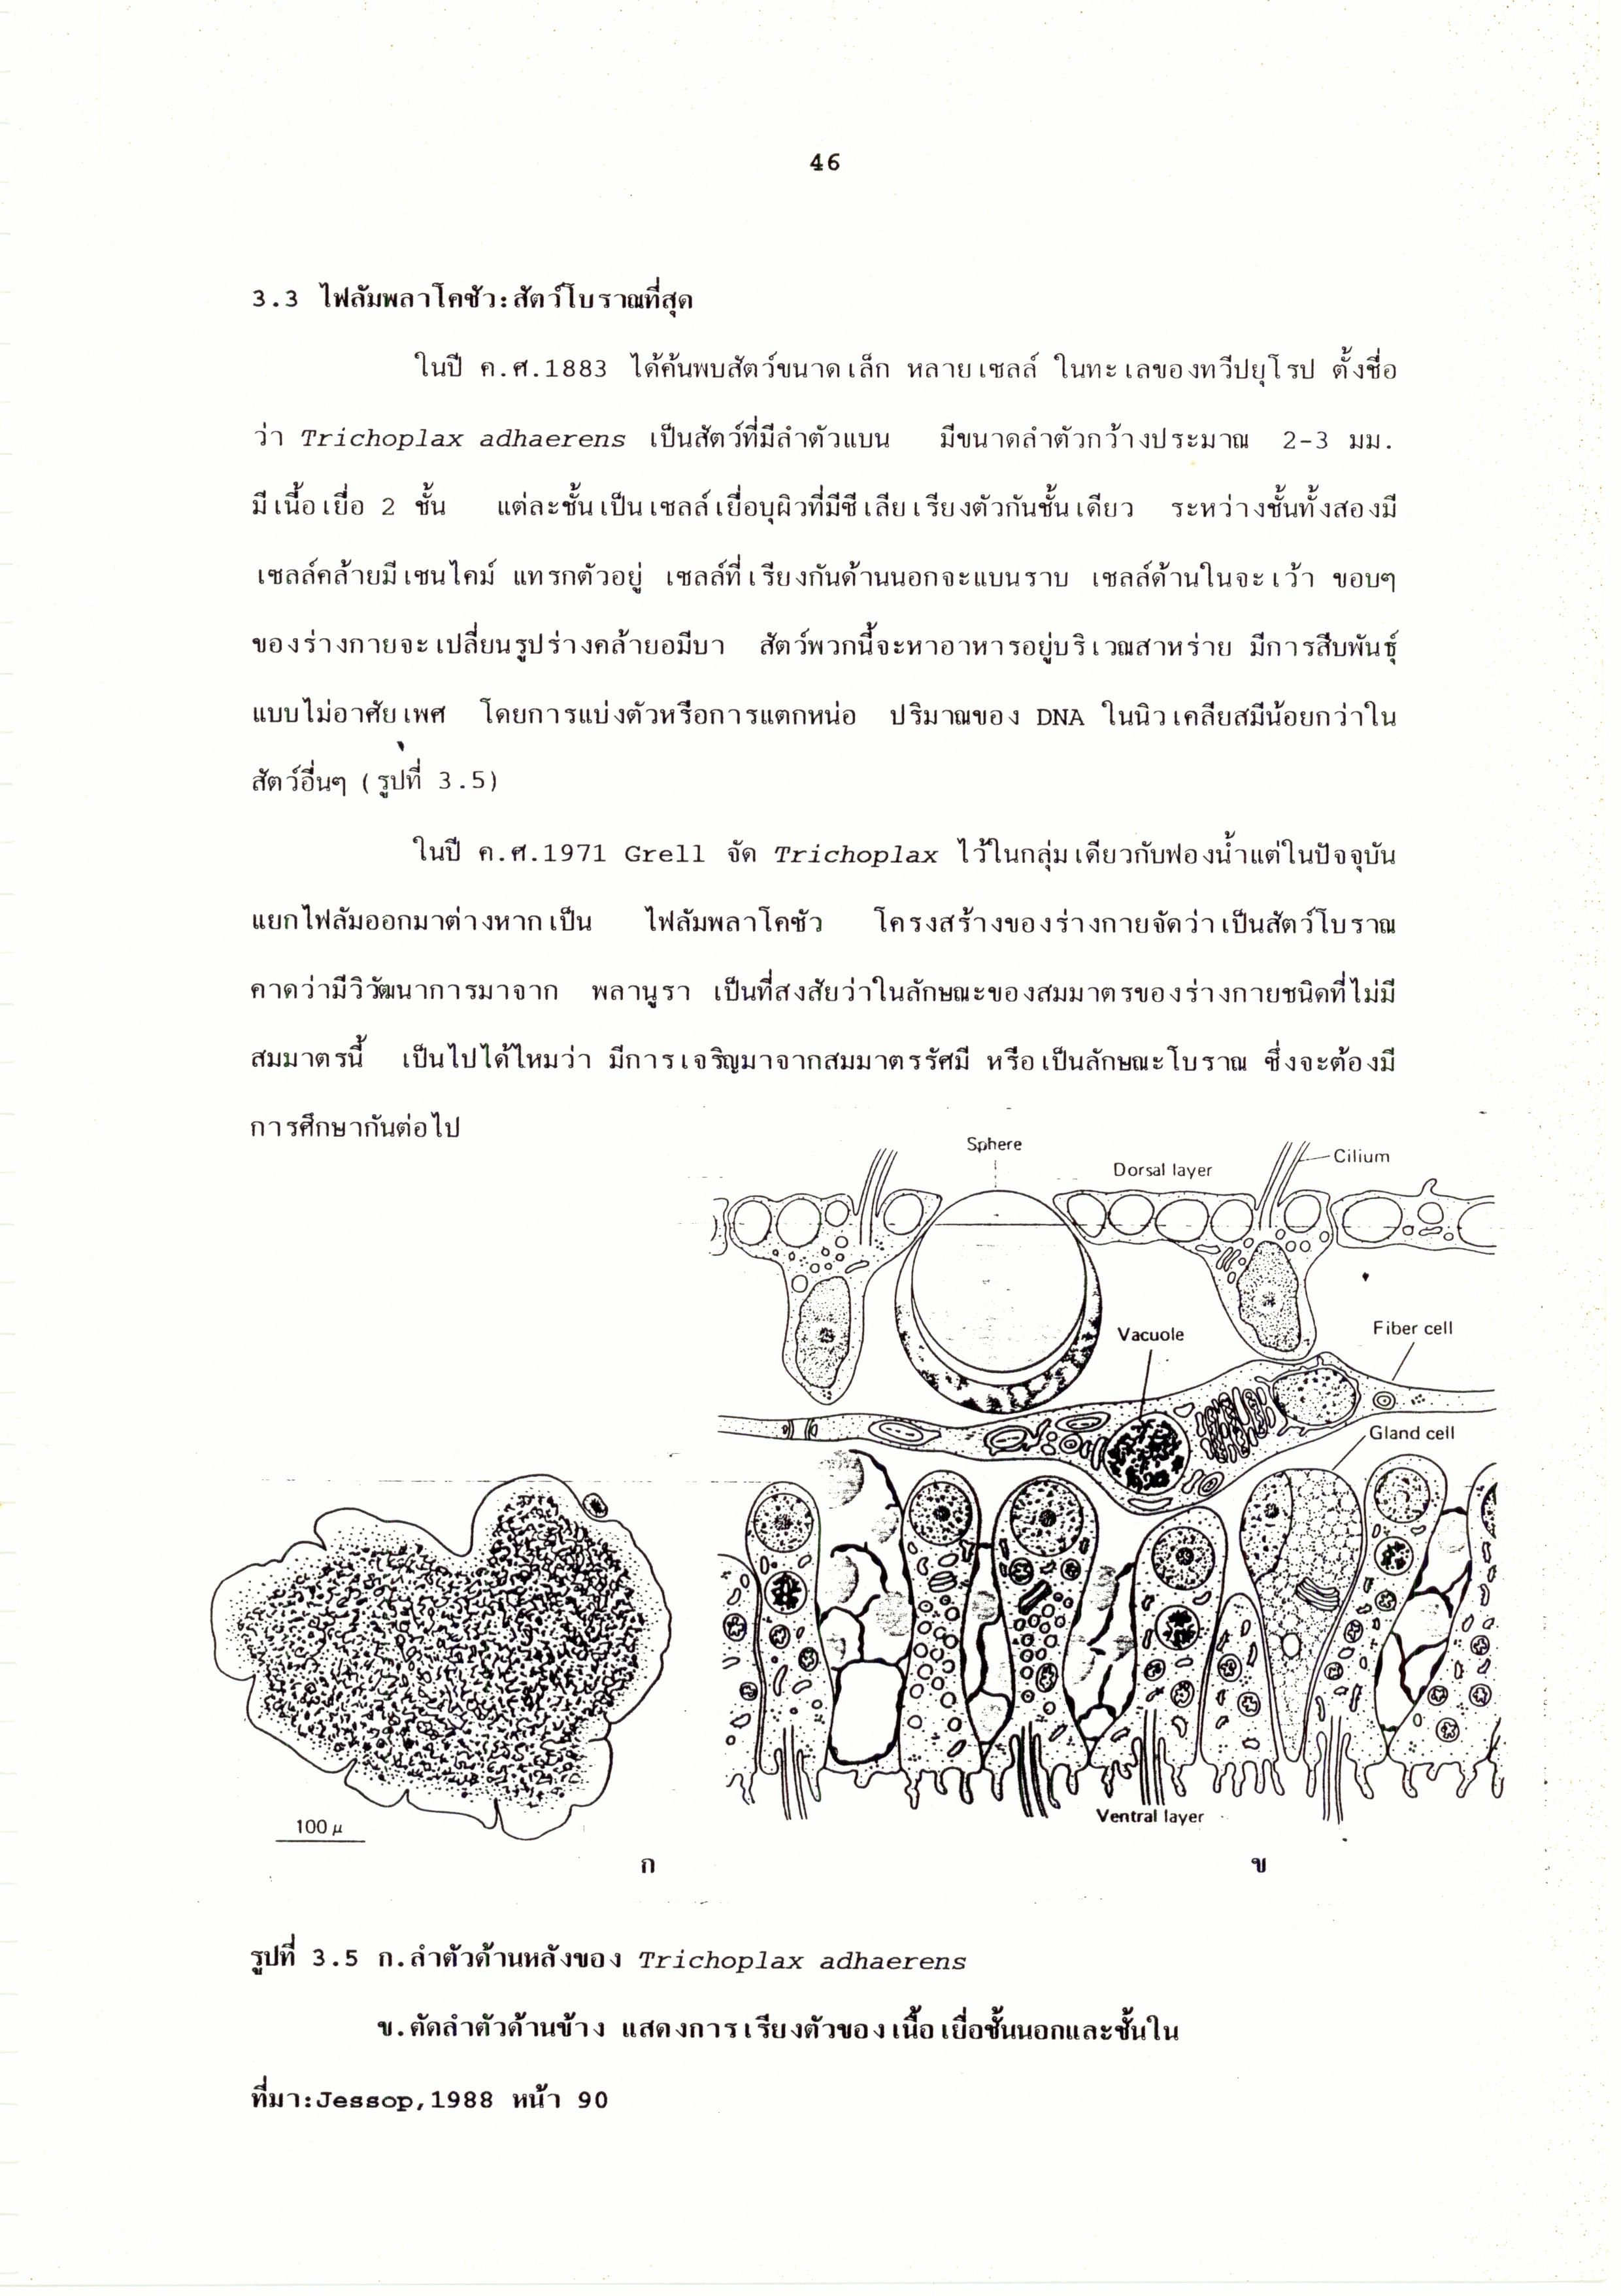 46
3.3 ไฟลัมพลาโคซัว:สัตว์โบราณที่สุด
ในปี ค.ศ.1883 ได้ค้นพบสัตว์ขนาดเล็ก หลายเซลล์ ในทะเลของทวีปยุโรป ตั้งชื่อ
ว่า Trichoplax adhaerens เป็นสัตว์ที่มีลำตัวแบน มีขนาดลำตัวกว้างประมาณ 2-3 มม.
มีเนื้อเยื่อ 2 ชั้น แต่ละชั้นเป็นเซลล์เยื่อบุผิวที่มีซีเลียเรียงตัวกันชั้นเดียว ระหว่างชั้นทั้งสองมี
เซลล์คล้ายมีเซนไคม์ แทรกตัวอยู่ เซลล์ที่เรียงกันด้านนอกจะแบนราบ เซลล์ด้านในจะเว้า ขอบๆ
ของร่างกายจะเปลี่ยนรูปร่างคล้ายอมีบา สัตว์พวกนี้จะหาอาหารอยู่บริเวณสาหร่าย มีการสืบพันธุ์
แบบไม่อาศัยเพศ โดยการแบ่งตัวหรือการแตกหน่อ ปริมาณของ DNA ในนิวเคลียสมีน้อยกว่าใน
สัตว์อื่นๆ (รูปที่ 3.5)
ในปี ค.ศ.1971 Grell จัด Trichoplax ไว้ในกลุ่มเดียวกับฟองน้ำแต่ในปัจจุบัน
แยกไฟลัมออกมาต่างหากเป็น ไฟลัมพลาโคซัว โครงสร้างของร่างกายจัดว่าเป็นสัตว์โบราณ
คาดว่ามีวิวัฒนาการมาจาก พลานูรา เป็นที่สงสัยว่าในลักษณะของสมมาตรของร่างกายชนิดที่ไม่มี
สมมาตรนี้ เป็นไปได้ไหมว่า มีการเจริญมาจากสมมาตรรัศมี หรือเป็นลักษณะโบราณ ซึ่งจะต้องมี
การศึกษากันต่อไป
Sphere
Dorsal layer
Cilium
Vacuole
Fiber cell
Gland cell
Ventral layer
100 μ
ก
ข
รูปที่ 3.5 ก.ลำตัวด้านหลังของ Trichoplax adhaerens
ข.ตัดลำตัวด้านข้าง แสดงการเรียงตัวของเนื้อเยื่อชั้นนอกและชั้นใน
ที่มา:Jessop,1988 หน้า 90